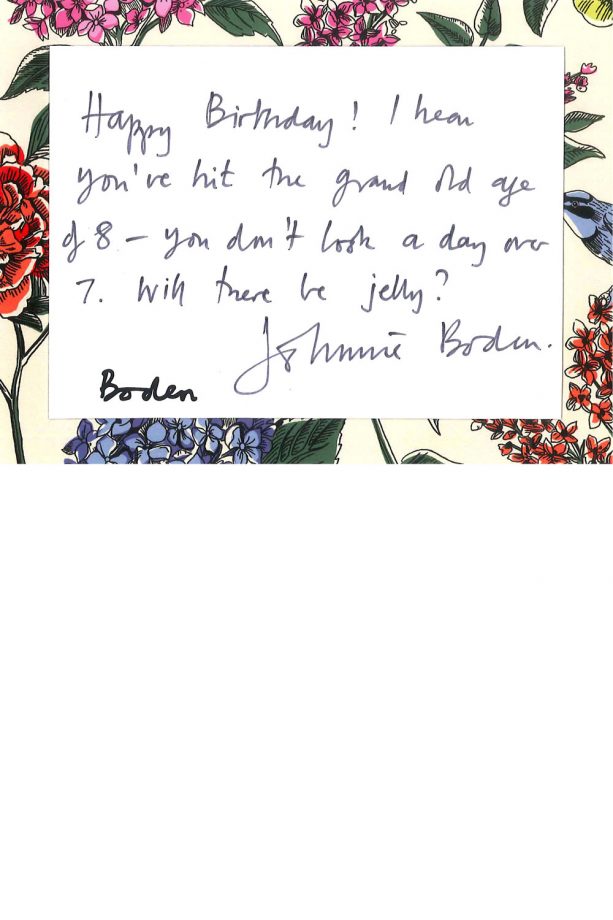 Happy Birthday! I hear
you've hit the grand old age
of 8 – you don't look a day over
7. Will there be jelly?
Johnnie Boden.
Boden